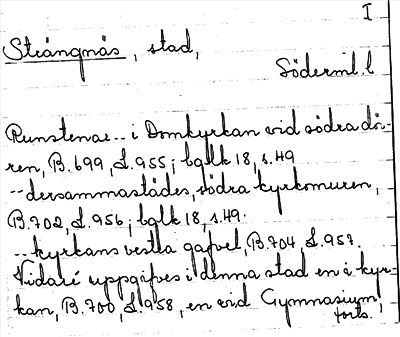 I
Strängnäs, stad,
Söderml. l
Runstenar -- i Domkyrkan vid södra dör-
ren, B. 699, L. 955; bglk 18, s. 49
-- dersammastädes, södra kyrkomuren,
B. 702, L. 956; bglk 18, s. 49.
-- kyrkans vestra gafvel, B. 704, L. 957.
Vidare uppgifves i denna stad en i kyr-
kan, B. 700, L. 958, en vid Gymnasium,
forts.